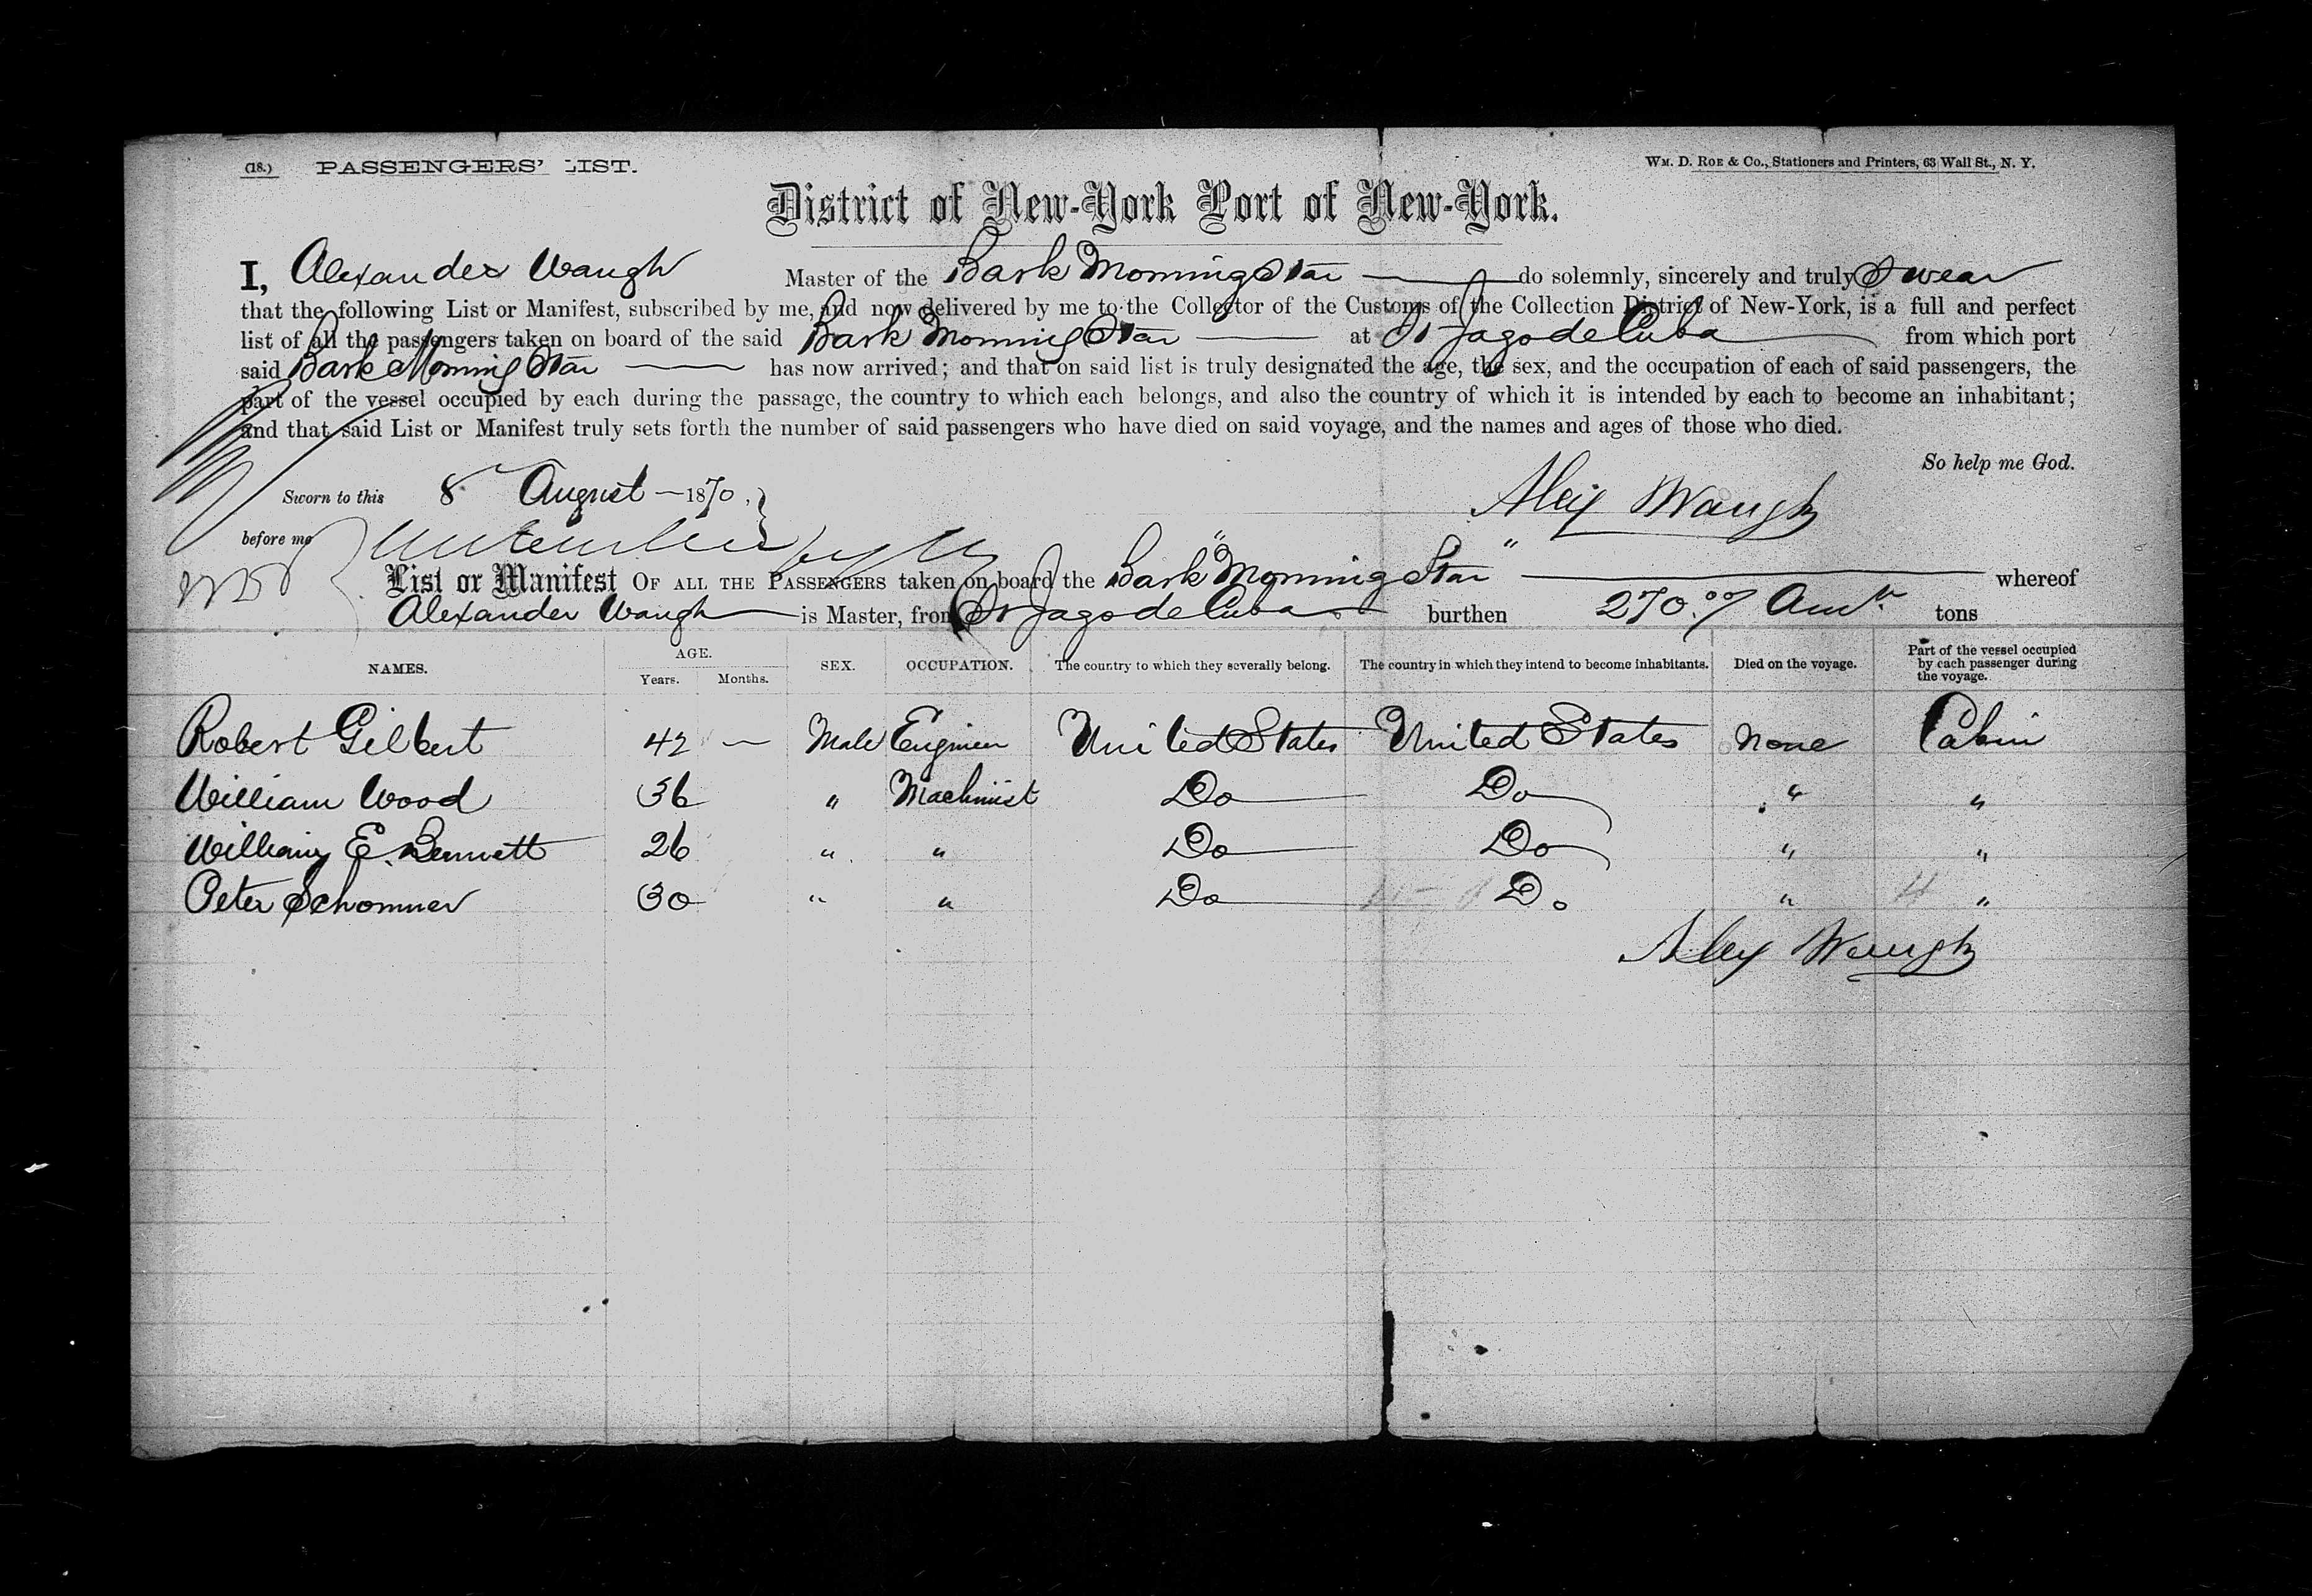 (18.) PASSENGERS' LIST. WM. D. ROE & CO., Stationers and Printers, 63 Wall St., N. Y.
District of New-York Port of New-York.
I, Alexander Waugh Master of the Bark Morning Star do solemnly, sincerely and truly Swear
that the following List or Manifest, subscribed by me, and now delivered by me to the Collector of the Customs of the Collection District of New-York, is a full and perfect
list of all the passengers taken on board of the said Bark Morning Star at St Jago de Cuba from which port
said Bark Morning Star has now arrived; and that on said list is truly designated the age, the sex, and the occupation of each of said passengers, the
part of the vessel occupied by each during the passage, the country to which each belongs, and also the country of which it is intended by each to become an inhabitant;
and that said List or Manifest truly sets forth the number of said passengers who have died on said voyage, and the names and ages of those who died.
So help me God.
Sworn to this 8 August 1870, Alex Waugh
before me
List or Manifest OF ALL THE PASSENGERS taken on board the Bark "Morning Star" whereof
Alexander Waugh is Master, from St Jago de Cuba burthen 270 tons
NAMES. AGE. Years. Months. SEX. OCCUPATION. The country to which they severally belong. The country in which they intend to become inhabitants. Died on the voyage. Part of the vessel occupied by each passenger during the voyage.
Robert Gilbert 42 — Male Engineer United States United States None Cabin
William Wood 36 " Machinist Do Do " "
William E. Bennett 26 " " Do Do " "
Peter Schommer 30 " " Do Do " "
Alex Waugh